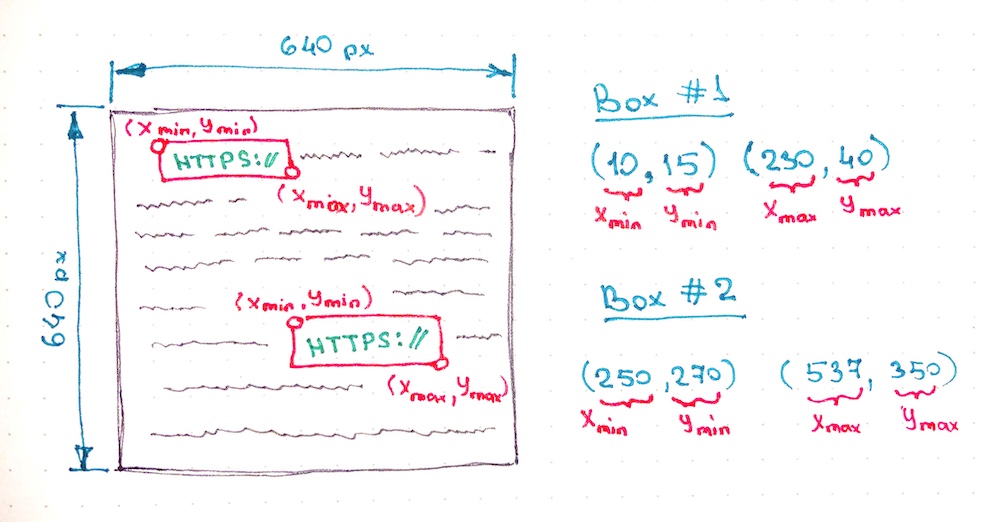 640 px
640 px
(xmin, ymin)
HTTPS://
(xmax, ymax)
(xmin, ymin)
HTTPS://
(xmax, ymax)
Box #1
(10, 15) (230, 40)
xmin ymin xmax ymax
Box #2
(250, 270) (537, 350)
xmin ymin xmax ymax